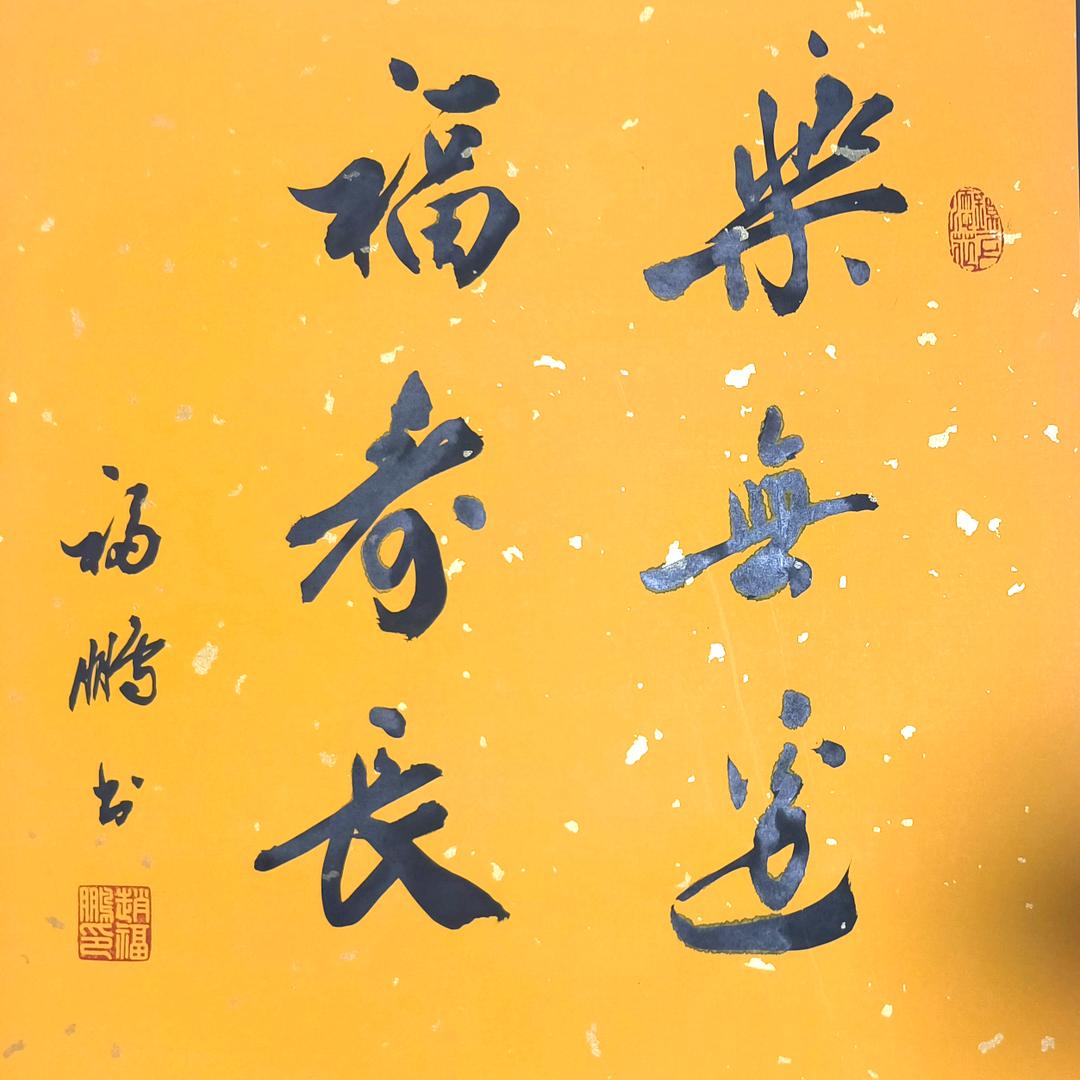 樂無邊
福寿長
福鵬书
趙福鵬印